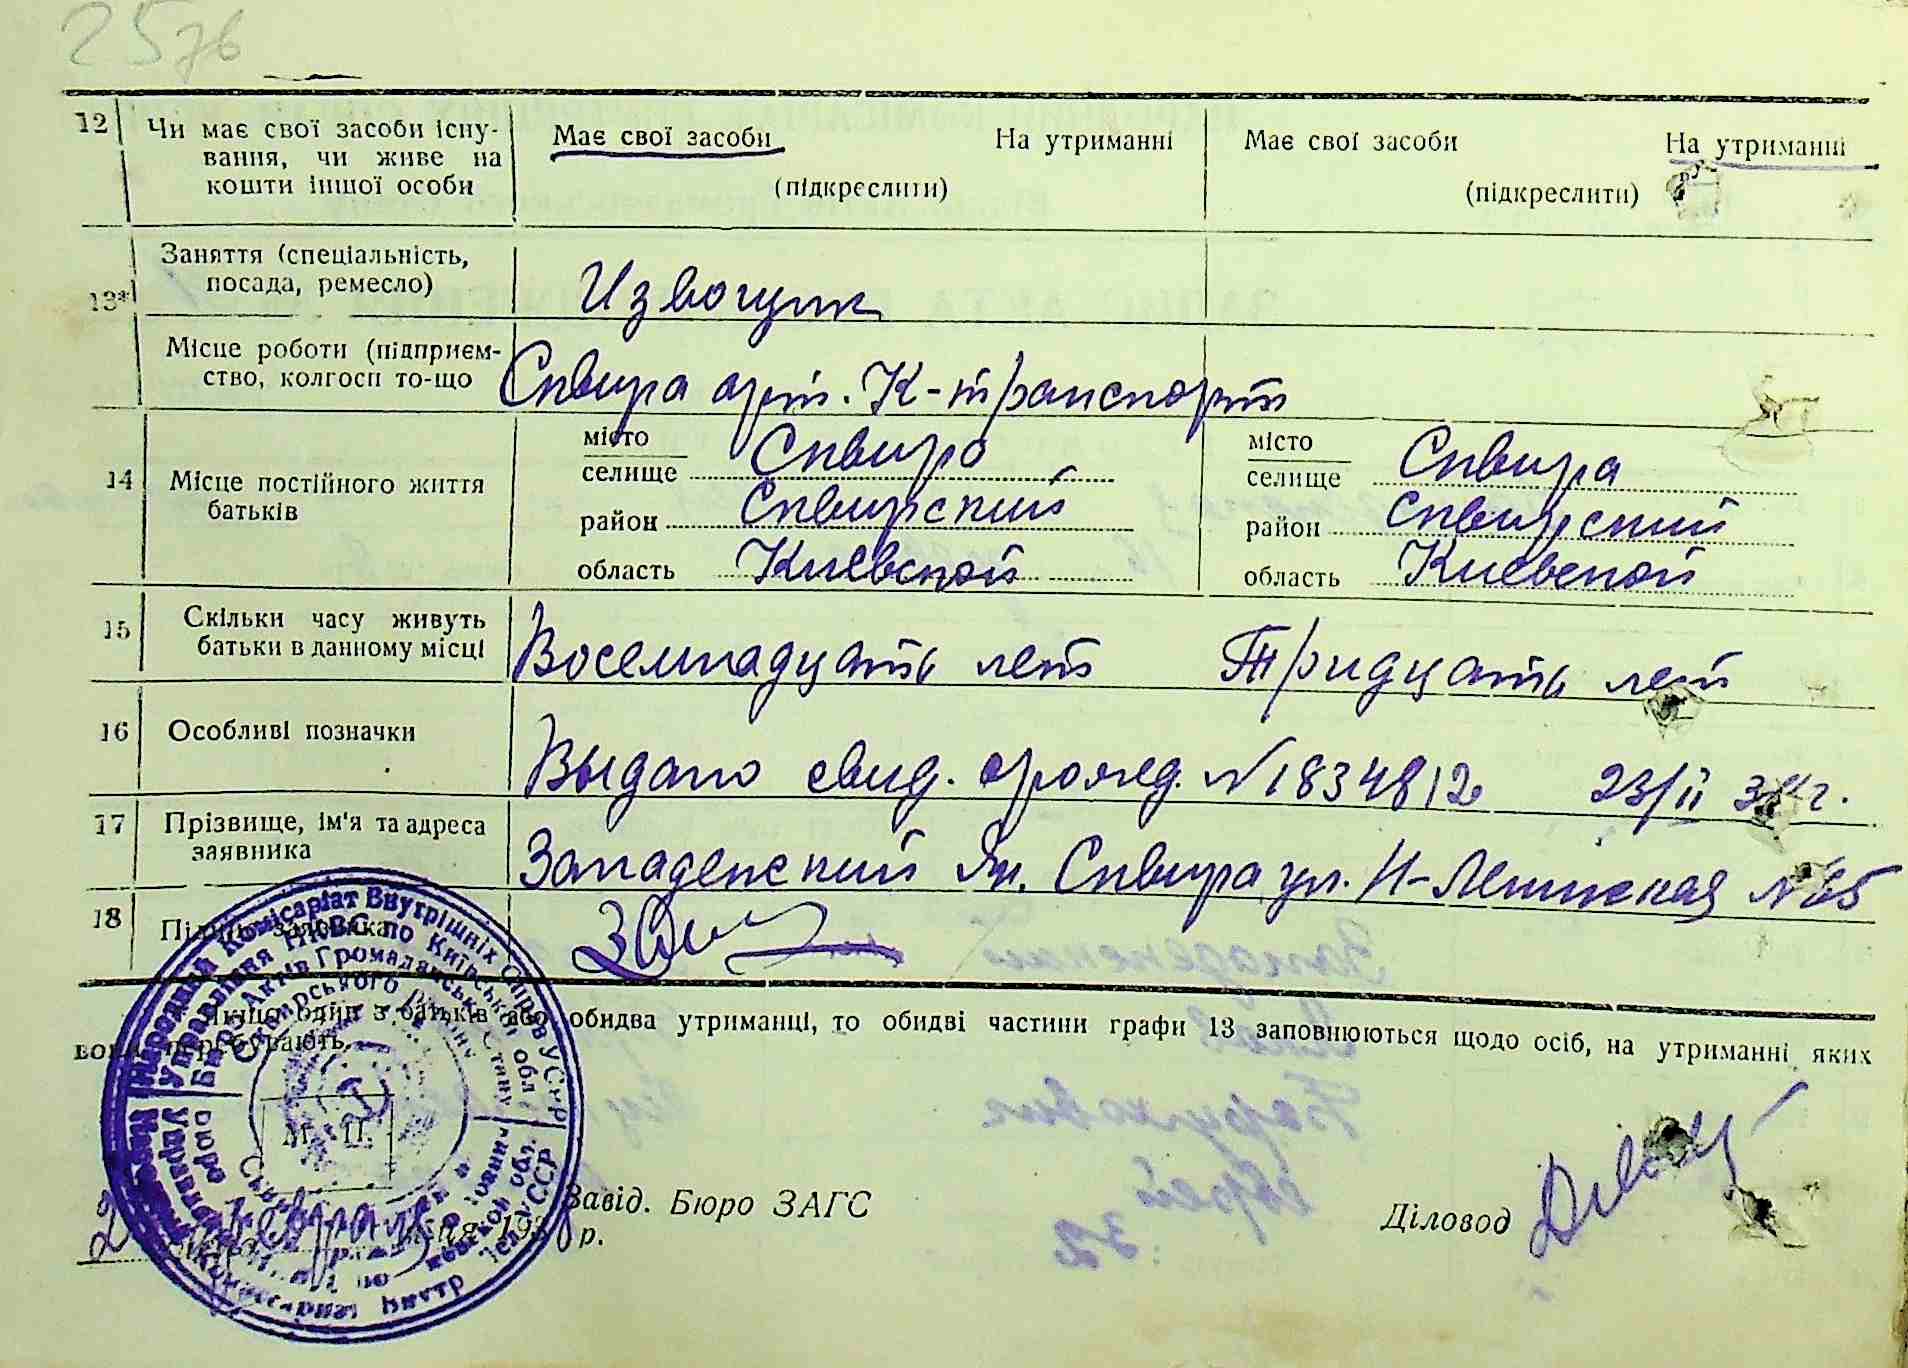 2576
12 Чи має свої засоби існу-
вання, чи живе на
кошти іншої особи
Має свої засоби На утриманні
(підкреслити)
Має свої засоби На утриманні
(підкреслити)
13* Заняття (спеціальність,
посада, ремесло)
Извощик
Місце роботи (підприєм-
ство, колгосп то-що
Сквира арт. К-транспорт
14 Місце постійного життя
батьків
місто
селище Сквира
район Сквирский
область Киевской
місто
селище Сквира
район Сквирский
область Киевской
15 Скільки часу живуть
батьки в данному місці
Восемнадцать лет Тридцать лет
16 Особливі позначки
Выдано свид. о рожд. №1834812 23/II
17 Прізвище, ім'я та адреса
заявника
Западенский Ян. Сквира ул. Н-Ленинская
18 Підпис заявника
Якщо один з батьків або обидва утриманці, то обидві частини графи 13 заповнюються щодо осіб, на утриманні яких
вони перебувають.
Народний Комісаріат Внутрішніх Справ УСРР
Управління НКВС по Київській обл.
Бюро Актів Громадянськ. Стану
Сквирського району
М. П.
Завід. Бюро ЗАГС
Діловод
февраля 193 р.